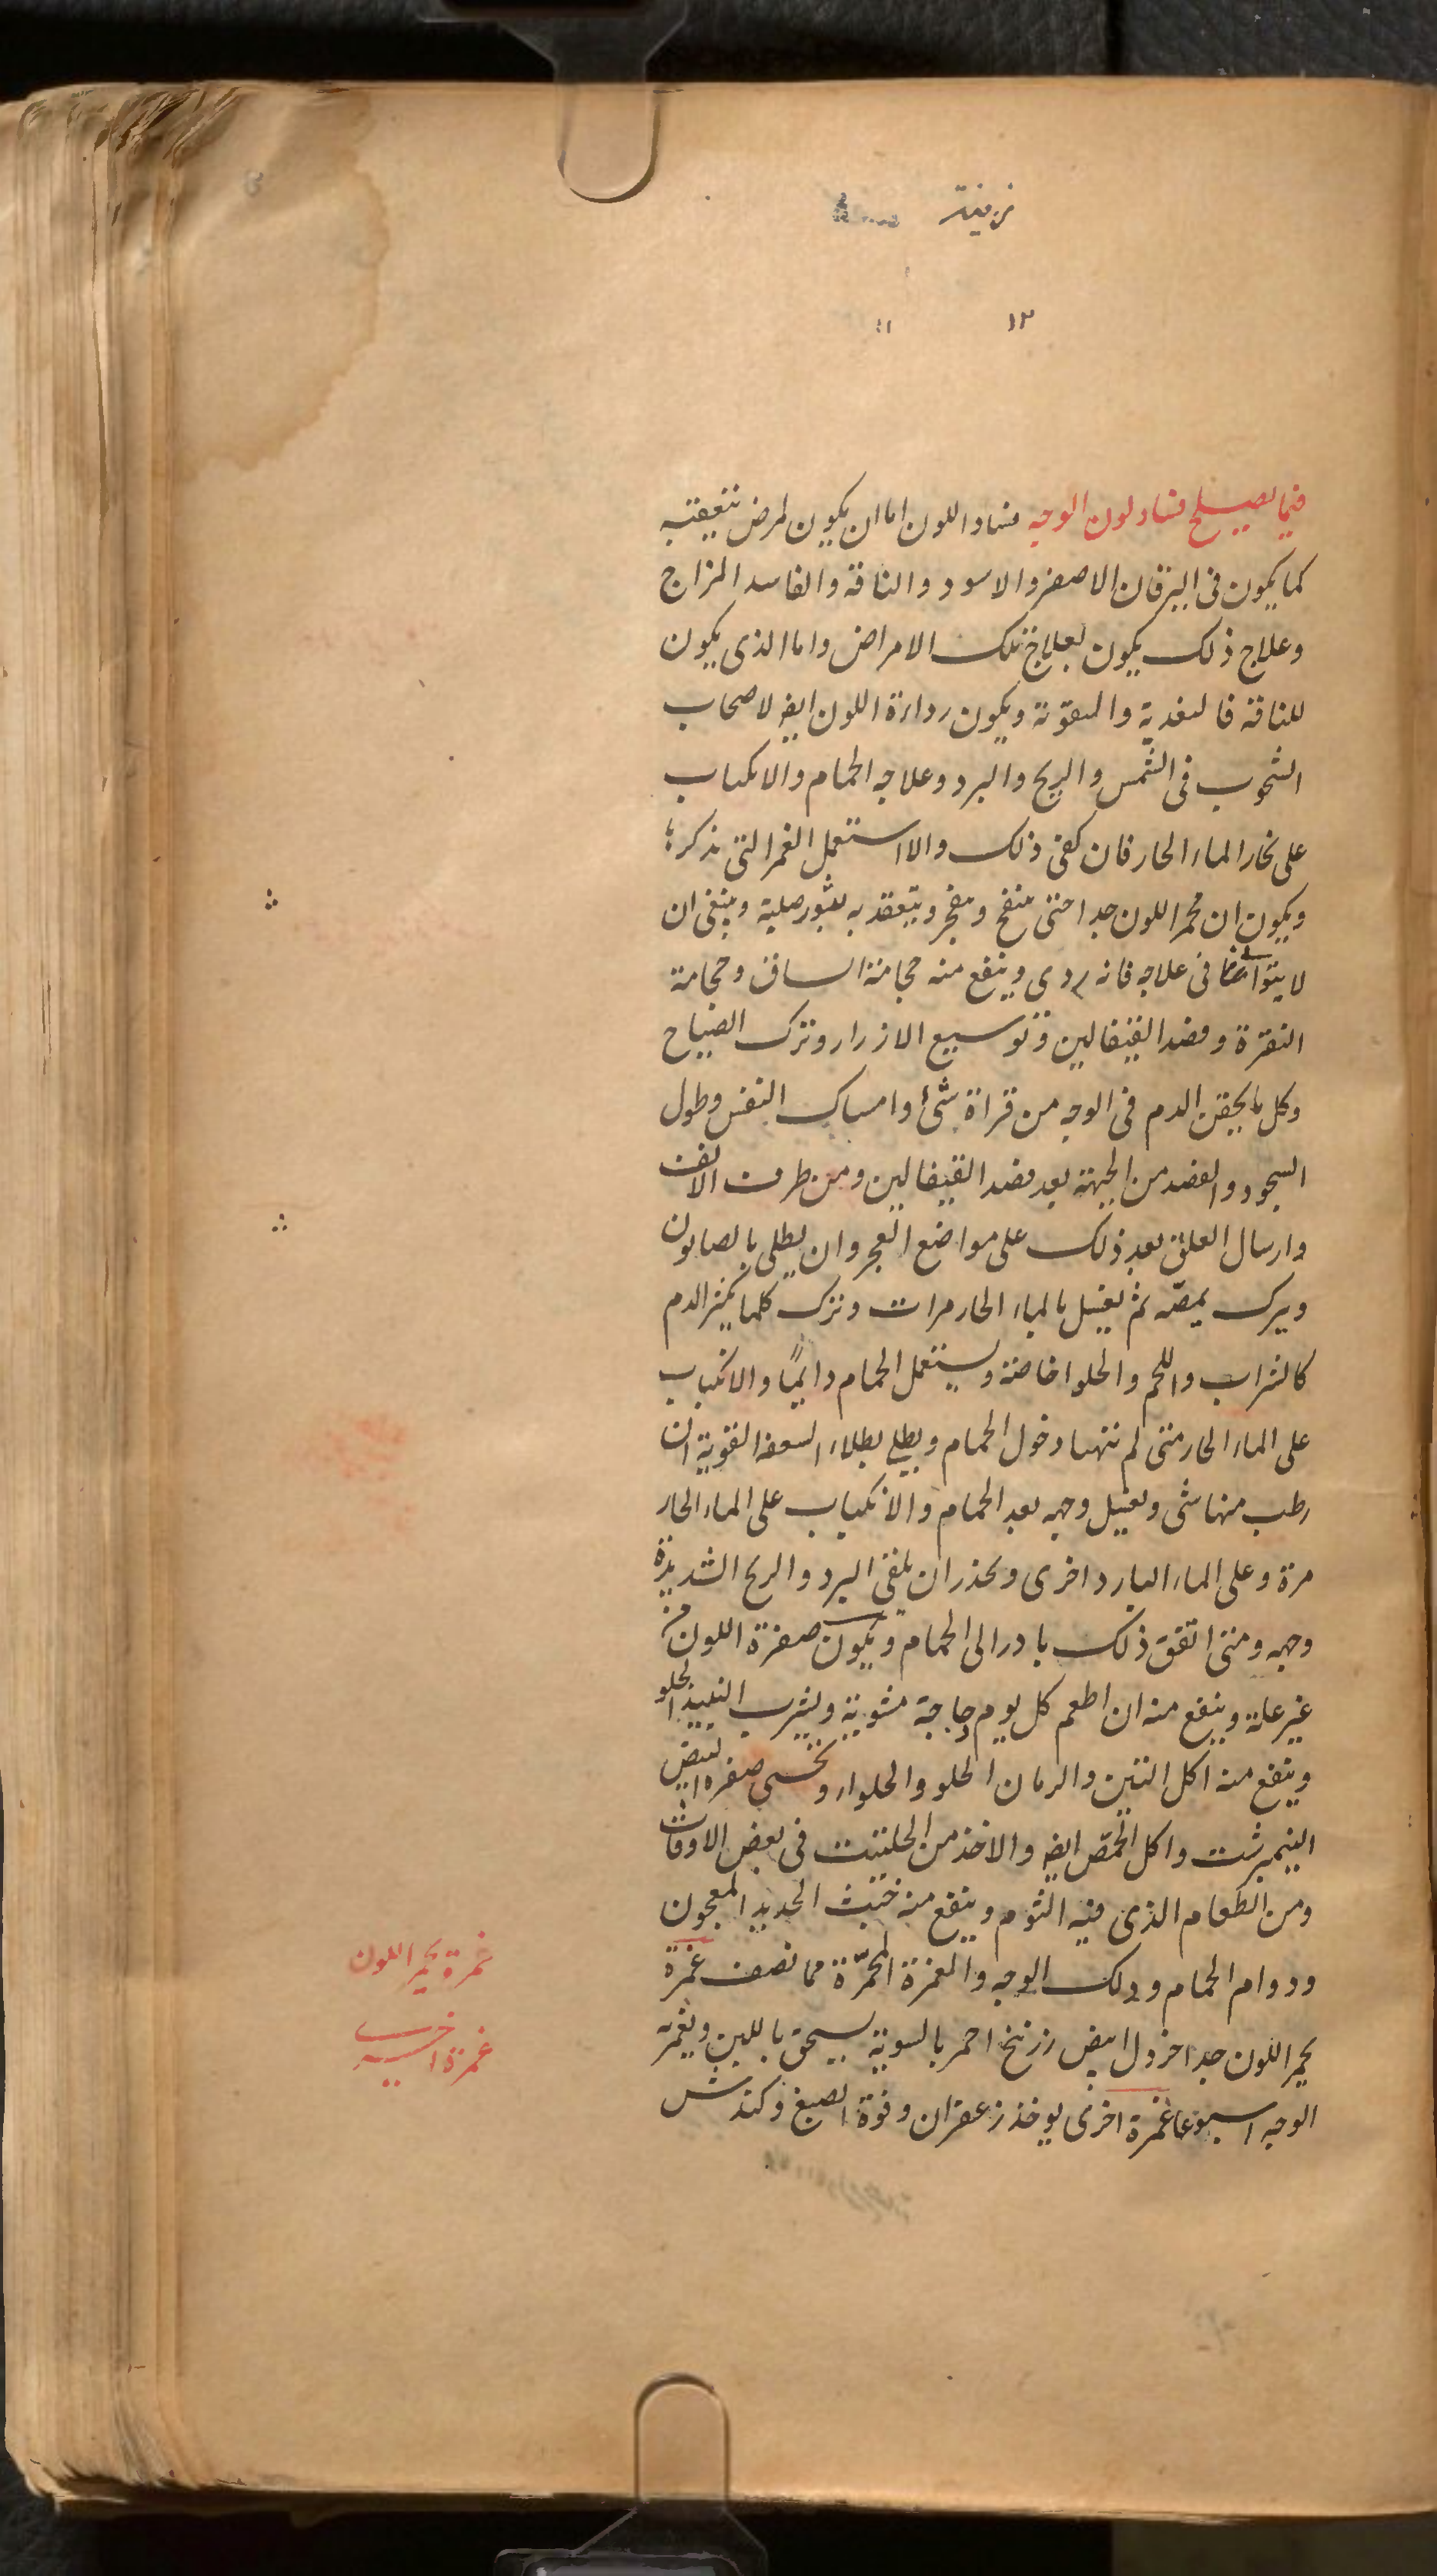 زينة
١٢ ١١
فيما يصلح فساد لون الوجه فساد اللون اما ان يكون لمرض نتعقبه
كما يكون فى اليرقان الاصفر والاسود والناقة والفاسد المزاج
وعلاج ذلك يكون بعلاج تلك الامراض واما الذى يكون
للناقة فالتغدية والتقوية ويكون رداءة اللون ايضا لاصحاب
الشحوب فى الشمس والريح والبرد وعلاجه الحمام والانكباب
على بخار الماء الحار فان كفى ذلك والا استعمل الغمر التى نذكر
ويكون ان محمر اللون جدا حتى ينتفخ ويتفجر ويتعقد به بثور صلبة وينبغى ان
لا يتوانى فى علاجه فانه ردى وينفع منه حجامة الساق وحجامة
النقرة وفصد القيفالين وتوسيع الازرار وترك الصياح
وكل ما يحقن الدم فى الوجه من قراءة شئ وامساك النفس وطول
السجود والفصد من الجبهة بعد فصد القيفالين ومن طرف الانف
وارسال العلق بعد ذلك على مواضع العجر وان يطلى بالصابون
ويترك يمصه ثم يغسل بالماء الحار مرات وترك كلما يكثر الدم
كالشراب واللحم والحلوا خاصة ويستعمل الحمام دايمًا والانكباب
على الماء الحار متى لم تتهيا دخول الحمام ويطلى بطلاء السعفة القوية ان
رطب منها شى ويغسل وجهه بعد الحمام والانكباب على الماء الحار
مرة وعلى الماء البارد اخرى ويحذر ان يلقى البرد والريح الشديدة
وجهه ومتى اتفق ذلك بادر الى الحمام ويكون صفرة اللون من
غير علة وينفع منه ان اطعم كل يوم دجاجة مشوية ويشرب النبيذ الحلو
وينفع منه اكل التين والرمان الحلو والحلواء وتحسى صفرة البيض
النيمبرشت واكل الحمّص ايضا والاخذ من الحلتيت فى بعض الاوقات
ومن الطعام الذى فيه الثوم وينفع منه خبث الحديد المعجون
ودوام الحمام ودلك الوجه والغمرة المحمّرة مما نصف غمرة
يحمر اللون جدا خردل ابيض زرنيخ احمر بالسوية يسحق باللبن ويغمر به
الوجه اسبوعا غمرة اخرى يوخذ زعفران وفوة الصبغ وكندش
غمرة يحمر اللون
غمرة اخرى